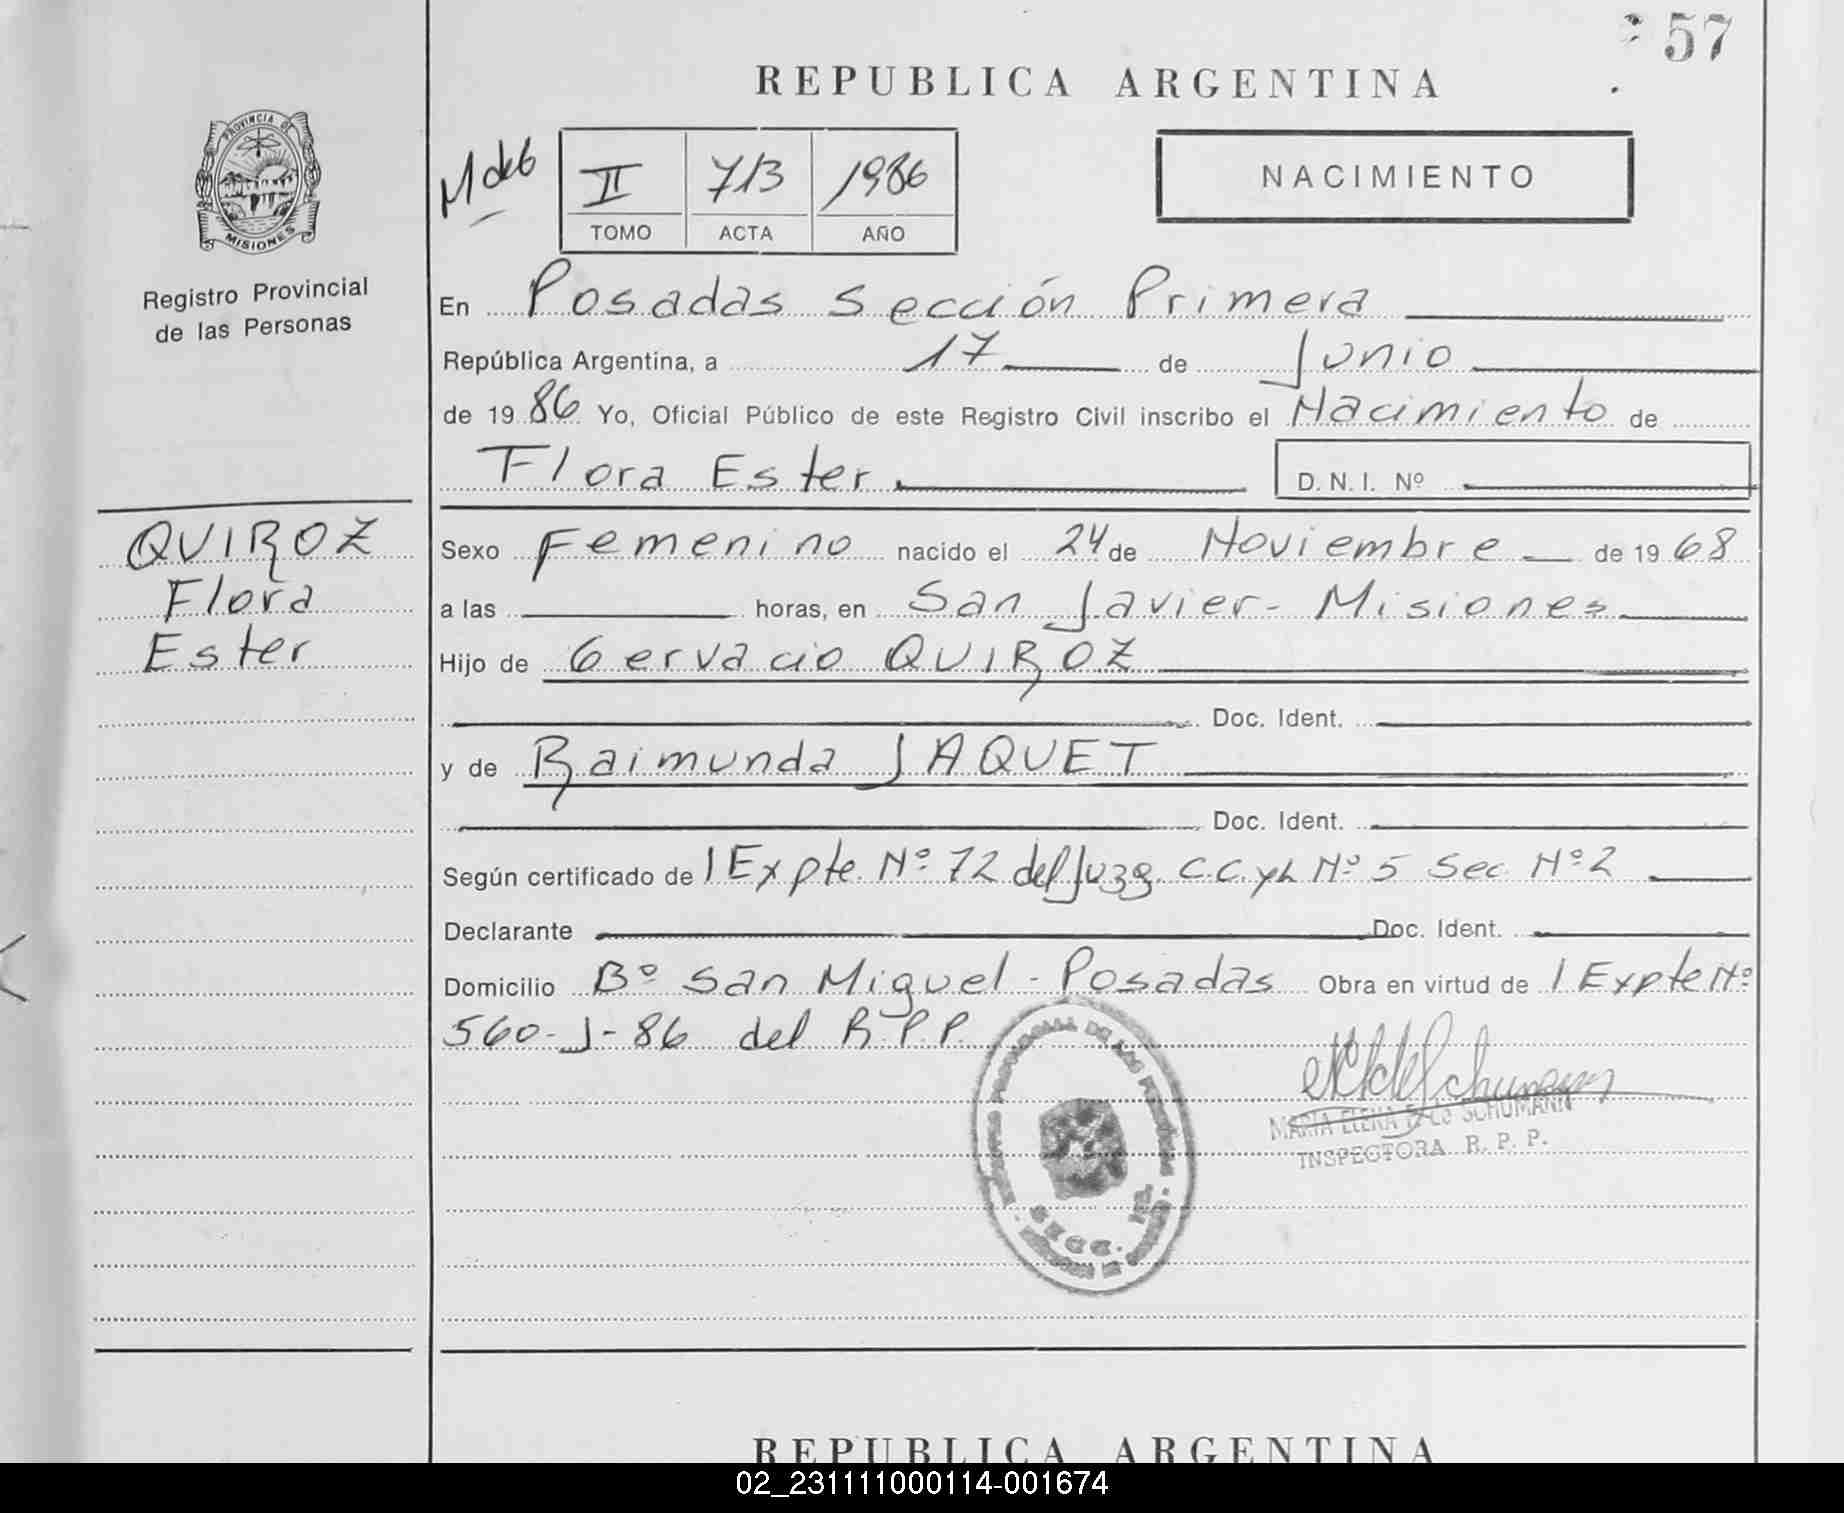 57
REPUBLICA ARGENTINA
PROVINCIA DE
MISIONES
Registro Provincial
de las Personas
II 713 1986
TOMO ACTA AÑO
NACIMIENTO
En Posadas Sección Primera
República Argentina, a 17 de Junio
de 1986 Yo, Oficial Público de este Registro Civil inscribo el Nacimiento de
Flora Ester D. N. I. Nº
QUIROZ
Flora
Ester
Sexo Femenino nacido el 24 de Noviembre de 1968
a las horas, en San Javier - Misiones
Hijo de Gervacio QUIROZ
Doc. Ident.
y de Raimunda JAQUET
Doc. Ident.
Según certificado de 1 Expte. Nº 72 del Juzg. C.C. y L Nº 5 Sec Nº 2
Declarante Doc. Ident.
Domicilio Bº San Miguel - Posadas Obra en virtud de 1 Expte Nº
560-J-86 del R.P.P.
MARIA ELENA de SCHUMANN
INSPECTORA R. P. P.
SECC. 1ra.
REPUBLICA ARGENTINA
02_231111000114-001674